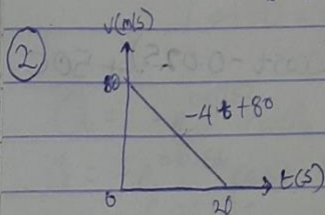 v(m/s)
2
80
-4t+80
0
20
t(s)